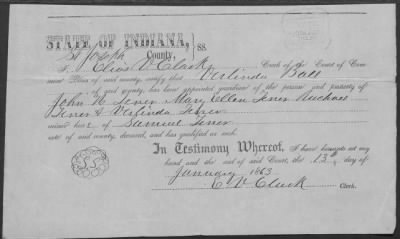 STATE OF INDIANA,
St Joseph County, } SS.
I, Elias V. Clark, Clerk of the Court of Com-
mon Pleas of said county, certify that Verlinda Ball
of said county, has been appointed guardian of the person and property of
John H. Jener Mary Ellen Jener
Jener & Verlinda Jener
minor heirs of Samuel Jener
late of said county, deceased, and has qualified as such.
In Testimony Whereof, I have hereunto set my
hand and the seal of said Court, this 13th day of
January 1863
E V Clark Clerk.